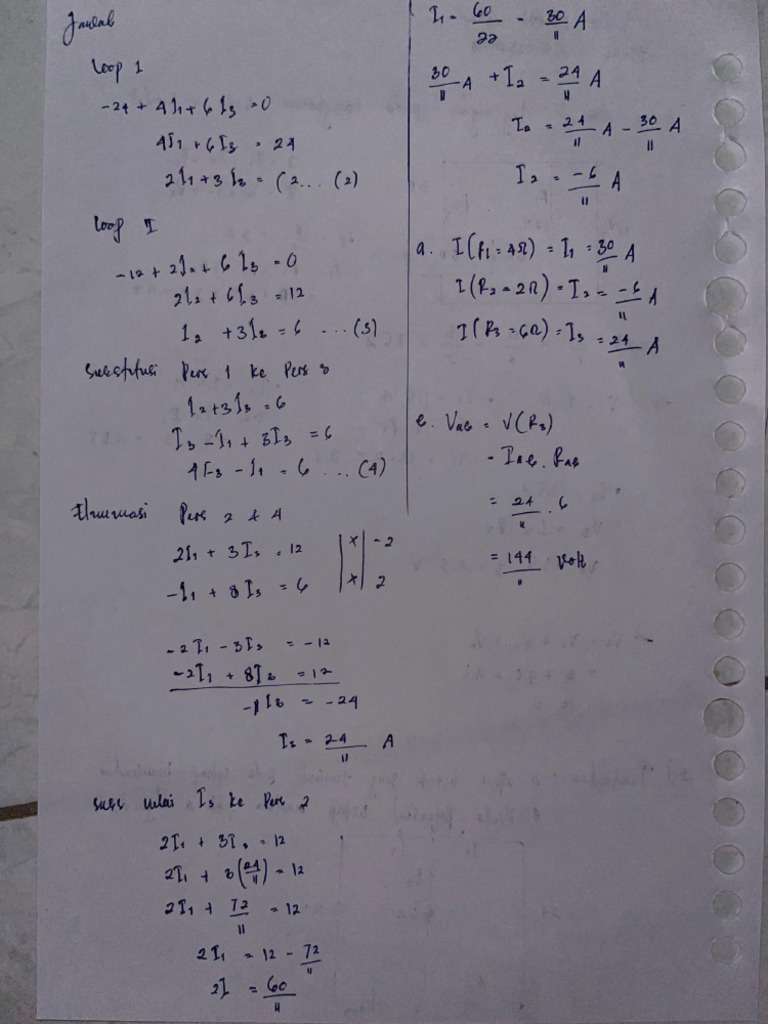 Jawab
Loop 1
-24 + 4I₁ + 6I₃ = 0
4I₁ + 6I₃ = 24
2I₁ + 3I₃ = (2 ... (2)
Loop II
-12 + 2I₂ + 6I₃ = 0
2I₂ + 6I₃ = 12
I₂ + 3I₃ = 6 ... (3)
Substitusi Pers 1 ke Pers 3
I₂ + 3I₃ = 6
I₃ - I₁ + 3I₃ = 6
4I₃ - I₁ = 6 ... (4)
Eliminasi Pers 2 & 4
2I₁ + 3I₃ = 12 |x| -2
-I₁ + 8I₃ = 6 |x| 2
-2I₁ - 3I₃ = -12
-2I₁ + 8I₃ = 12
-11I₃ = -24
I₃ = 24/11 A
subs nilai I₃ ke Pers 2
2I₁ + 3I₃ = 12
2I₁ + 3(24/11) = 12
2I₁ + 72/11 = 12
2I₁ = 12 - 72/11
2I = 60/11
I₁ = 60/22 = 30/11 A
30/11 A + I₂ = 24/11 A
I₂ = 24/11 A - 30/11 A
I₂ = -6/11 A
a. I(R₁ = 4Ω) = I₁ = 30/11 A
I(R₂ = 2Ω) = I₂ = -6/11 A
I(R₃ = 6Ω) = I₃ = 24/11 A
e. VAB = V(R₃)
= IAB . RAB
= 24/11 . 6
= 144/11 Volt